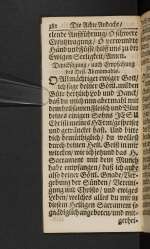 Die Achte Andacht/
elende Ausführung/ O schwere
Creutzigung/ O verwundte
Händ und Füsse/ helfft uns zu der
Ewigen Seeligkeit/ Amen.
Demüthigung und Empfahung
des Heil. Abendmahls.
O Allmächtiger ewiger Gott/
ich sage deiner Göttl. milden
Güte hertzlich Lob und Danck/
daß du mich nun abermahl mit
dem Fleisch und Blut
eines eingen Sohns JEsu
Christi meines HErrn/ gespeiset
und geträncket hast. Und bitte
dich demüthiglich/ du wollest
durch deinen Heil. Geist in mir
wircken/ wie ich das hochwürdige
Sacrament mit dem Munde
habe empfangen/ daß ich also
deine Göttl. Gnade/ Ver-
gebung der Sünden/ Verei-
nigung mit Christo/ und ewiges
Leben/ so du in diesen
Heiligen Sacrament so
gnädiglich angeboten/ und mit-
getheil-